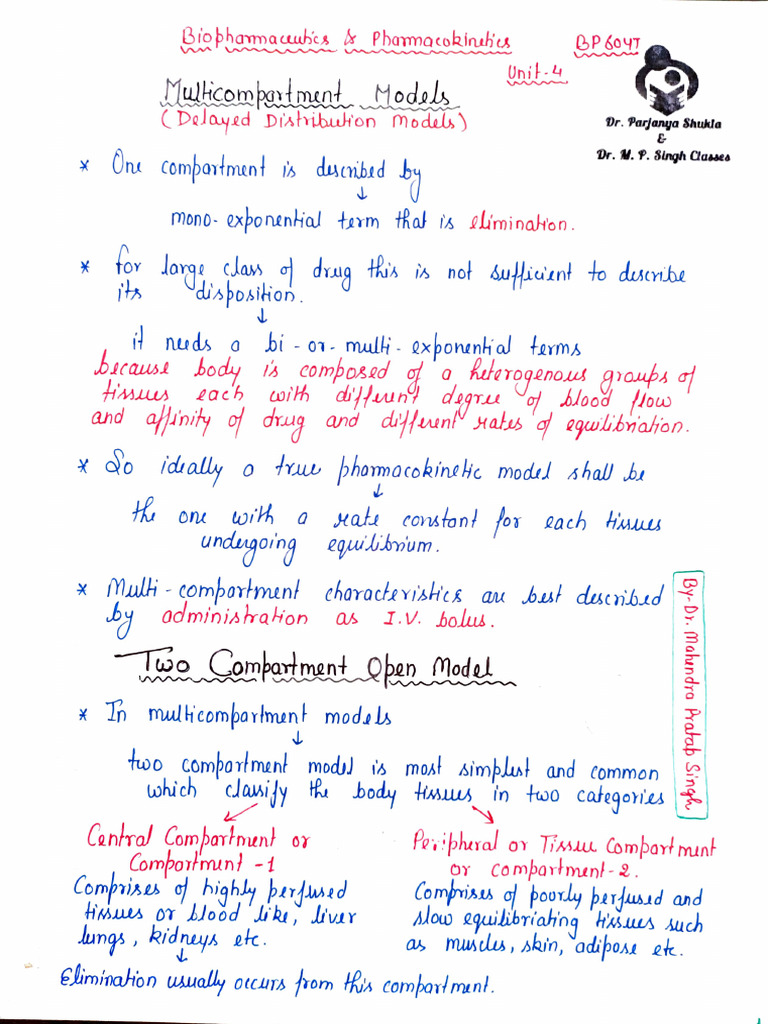 Biopharmaceutics & Pharmacokinetics BP604T
Unit-4
Multicompartment Models
(Delayed Distribution Models)
Dr. Parjanya Shukla
&
Dr. M. P. Singh Classes
* One compartment is described by
↓
mono-exponential term that is elimination.
* for large class of drug this is not sufficient to describe
its disposition.
↓
it needs a bi-or-multi-exponential terms
because body is composed of a heterogenous groups of
tissues each with different degree of blood flow
and affinity of drug and different rates of equilibriation.
* So ideally a true pharmacokinetic model shall be
↓
the one with a rate constant for each tissues
undergoing equilibrium.
* Multi-compartment characteristics are best described
by administration as I.V. bolus.
Two Compartment Open Model
* In multicompartment models
↓
two compartment model is most simplest and common
which classify the body tissues in two categories
Central Compartment or
Compartment-1
Comprises of highly perfused
tissues or blood like, liver
lungs, kidneys etc.
↓
Elimination usually occurs from this compartment.
Peripheral or Tissue Compartment
or compartment-2.
Comprises of poorly perfused and
slow equilibriating tissues such
as muscles, skin, adipose etc.
By-Dr. Mahendra Pratap Singh